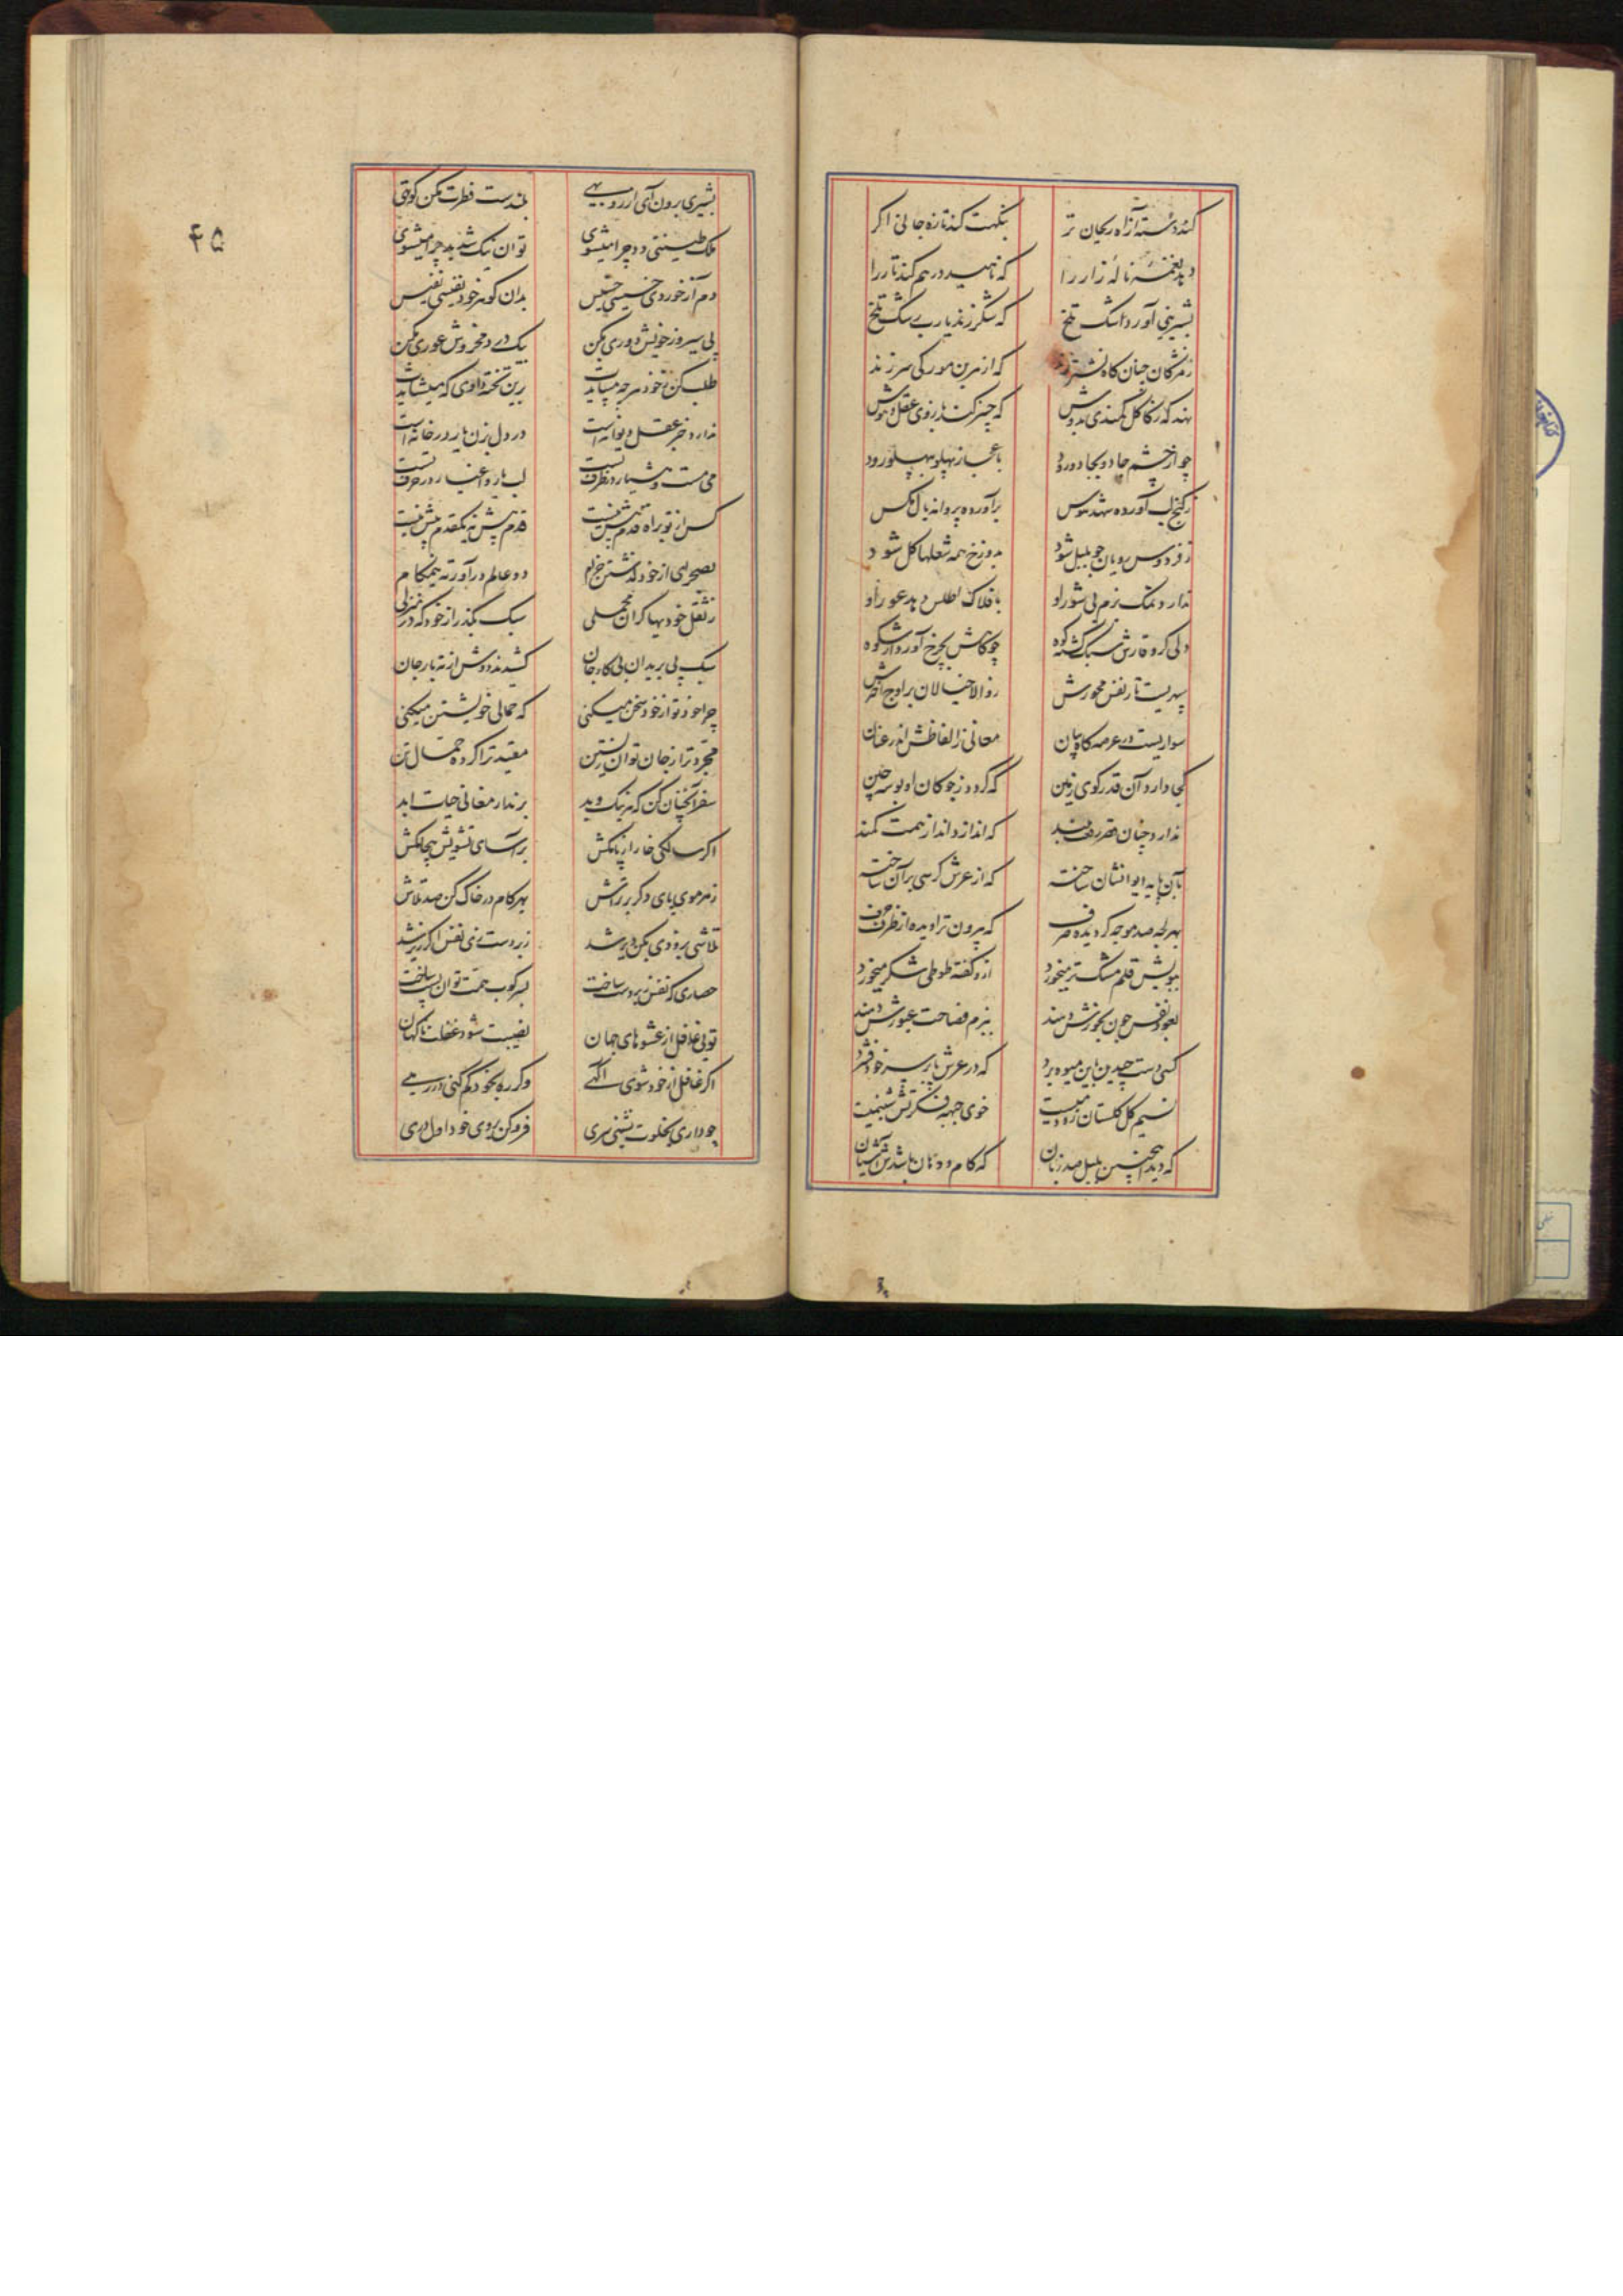 کند دسته از آه ریحان تر بنکهت کند تازه جانی اکر
دهد نغمه نالهٔ زار را که ناهید درهم کند تار را
بشیرینی آورد اشک تلخ که شکر زند یاری سنک تلخ
زمژکان چنان کاه نشتر زند که از هر بن مو رکی سر زند
نهد که ز کاکل کمندی بدوش که چنبر کند بازوی عقل و هوش
چو از چشم جادو بجادو رود باعجاز پهلو بپهلو رود
ز کنج لب آورده شهد هوس برآورده پروانه بال مکس
ز فردوس رویان چو بلبل شود بدوزخ همه شعلها کل شود
ندارد نمک بزم بی شور او بافلاک اطلس دهد عور او
ولی کز وقارش سبک کشته کوه چو کاهش بچرخ آورد از شکوه
سپهریست تار نفس محورش ز والا خیالان براوج اخترش
سواریست در عرصه کاه بیان معانی ز الفاظش اندر عنان
کجا دارد آن قدر کوی زمین که کردد ز چوکان او بوسه چین
ندارد چنان قصر رفعت بلند که اندازد انداز همت کمند
بآن پایه ایوانشان ساخته که از عرش کرسی برآن ساخته
بهر لجه صد موجه کردیده صرف که بیرون تراویده از ظرف حرف
ببویش قلم مشک تر میخورد ازو کفته طوطی شکر میخورد
بعود نفس چون بخورش دهند ببزم فصاحت عبورش دهند
کسی دست چیدن باین میوه برد که در عرش پا بر سر خود فشرد
نسیم کل کلستان زمیست خوی جبهه فکرتش شبنمیست
که دید اینچنین بلبل صد زبان که کام و دهان باشدش آشیان
بشیری برون آی از روبهی بلندست فطرت مکن کوتهی
ملک طینتی دد چرا میشوی توان نیک شد بد چرا میشوی
دم آز خوردی خسیسی خسیس بدان کوهر خود نفیسی نفیس
پی سیر و ز خویش دوری مکن
طلب کن ز خود هرچه میبایدت
ندارد خبر عقل دیوانه است در دل بزن یار در خانه است
می مست و هشیار در ظرف تست لب یار و اغیار در حرف تست
کس از تو براه قدم پیش نیست قدم پیش نه یکقدم پیش نیست
بصحرای از خود کذشتن خرام دو عالم درآور ته نیمکام
ز ثقل خودیها کران محملی سبک بکذر از خود که در منزلی
سبک پی بریدان بی کاه جان کشیدند دوش از ته بار جان
چرا خود تو از خود سخن میکنی که حمالی خویشتن میکنی
مجرد تر از جان توان زیستن مقید ترا کرده حمال تن
سفر آنچنان کن که هر نیک و بد برندار مغانی حیات ابد
اکر سالکی خار از پا مکش براسای تشویش بیجا مکش
ز هر موی پای دکر بر تراش بهر کام در خاک کن صد تلاش
تلاشی بزودی بکن دیر شد زبردستی نفس اکر زیر شد
حصاری که نفس زبردست ساخت بسرکوب همت توان پست ساخت
تویی غافل از عشوهای جهان نصیبت شود غفلت ناکهان
اکر غافل از خود شوی آکهی وکر ره بخود کم کنی در رهی
چو داری بخلوت نشینی سری فروکن بروی خود اول دری
۴۵